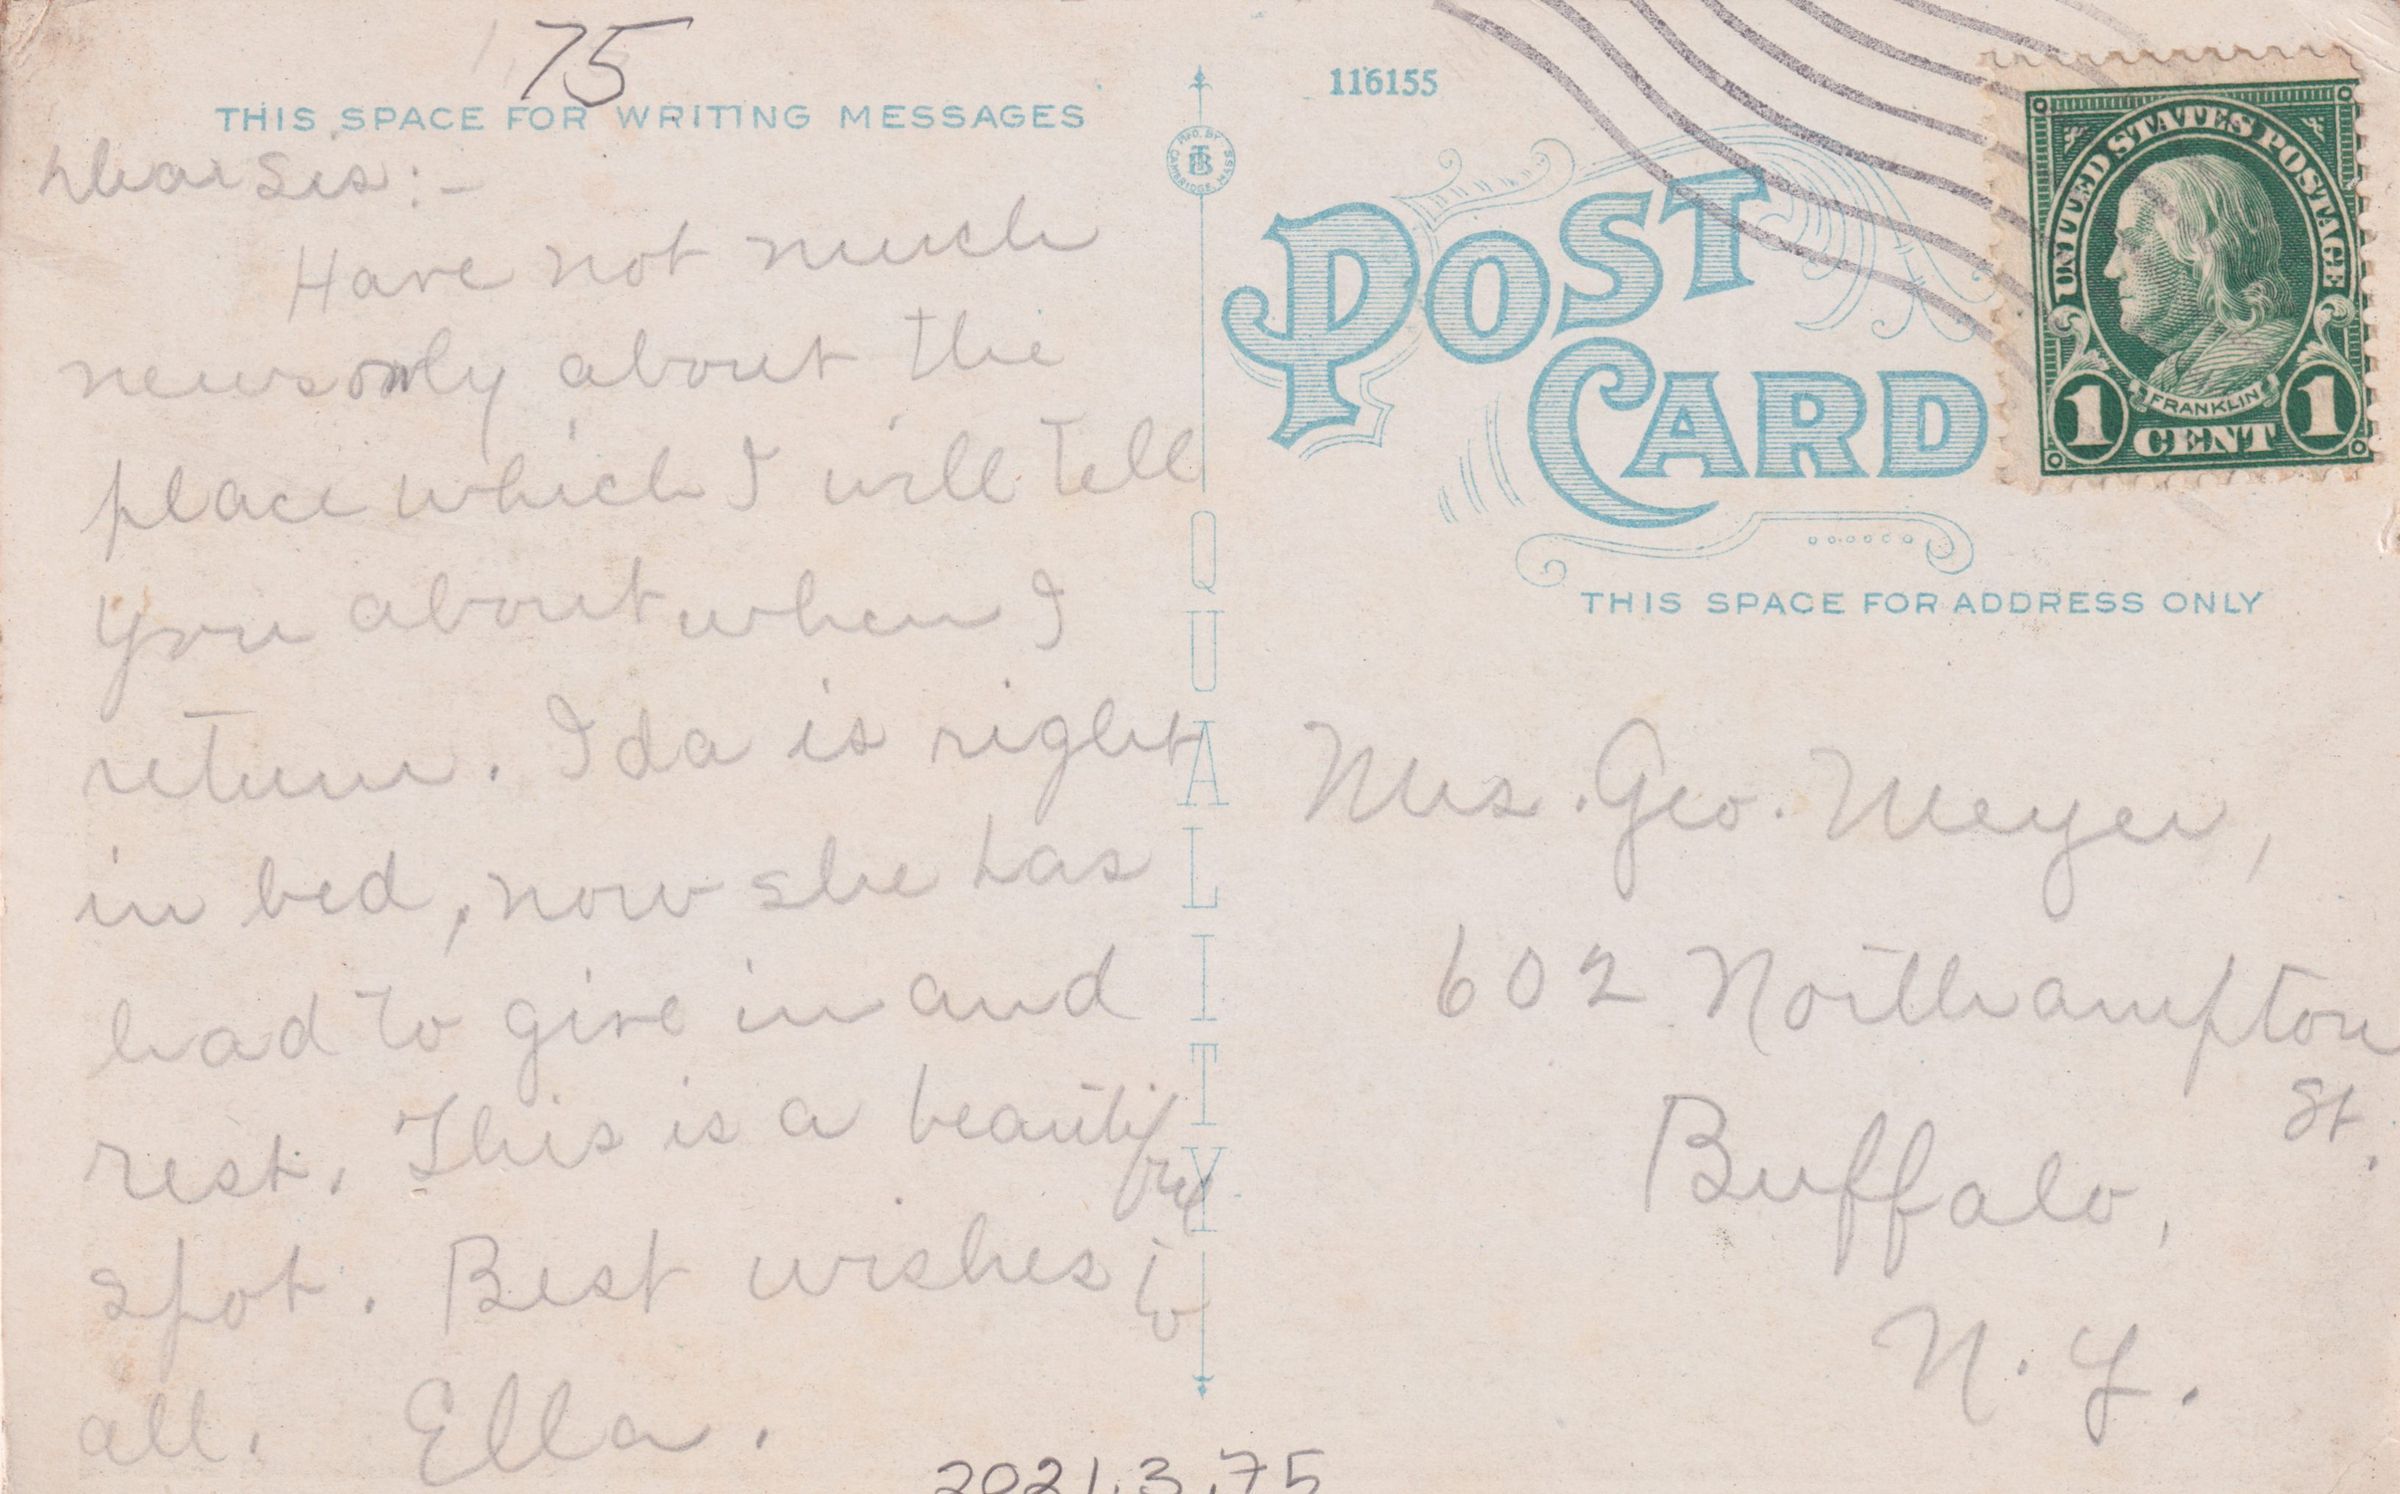 75
THIS SPACE FOR WRITING MESSAGES
Dear Sis:-
Have not much
news only about the
place which I will tell
you about when I
return. Ida is right
in bed, now she has
had to give in and
rest. This is a beautiful
spot. Best wishes to
all. Ella.
2021.3.75
MFD. BY
TB
CAMBRIDGE, MASS
QUALITY
116155
POST
CARD
THIS SPACE FOR ADDRESS ONLY
UNITED STATES POSTAGE
FRANKLIN
1 CENT 1
Mrs. Geo. Meyer,
602 Northampton
St.
Buffalo,
N.Y.